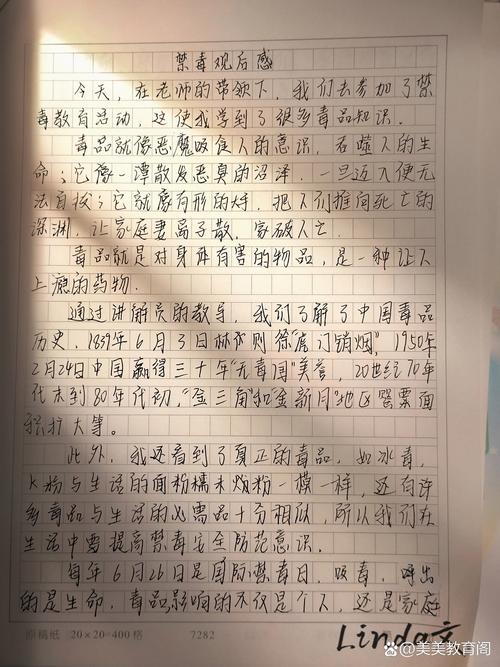 禁毒观后感
今天，在老师的带领下，我们去参加了禁
毒教育活动，这使我学到了很多毒品知识．
毒品就像恶魔吸食人的意识，吞噬人的生
命；它像一潭散发恶臭的沼泽．一旦迈入便无
法自拔；它就像有形的大手．把人们推向死亡的
深渊．让家庭妻离子散、家破人亡．
毒品就是对身体有害的物品，是一种让人
上瘾的药物．
通过讲解员的教导，我们了解了中国毒品
历史．1839年6月3日林则徐“虎门销烟”，1950年
2月24日中国赢得三十年“无毒国”美誉，20世纪70年
代末到80年代初，“金三角”和“金新月”地区罂粟面
积扩大等。
此外，我还看到了真正的毒品，如冰毒，
K粉与生活的面粉糯米粉一模一样，还有许
多毒品与生活的必需品十分相似，所以我们在
生活中要提高禁毒安全防范意识．
每年6月26日是国际禁毒日．吸毒，呼出
的是生命，毒品影响的不仅是个人，还是家庭
原稿纸 20×20=400格 7282
Linda文
@美美教育阁